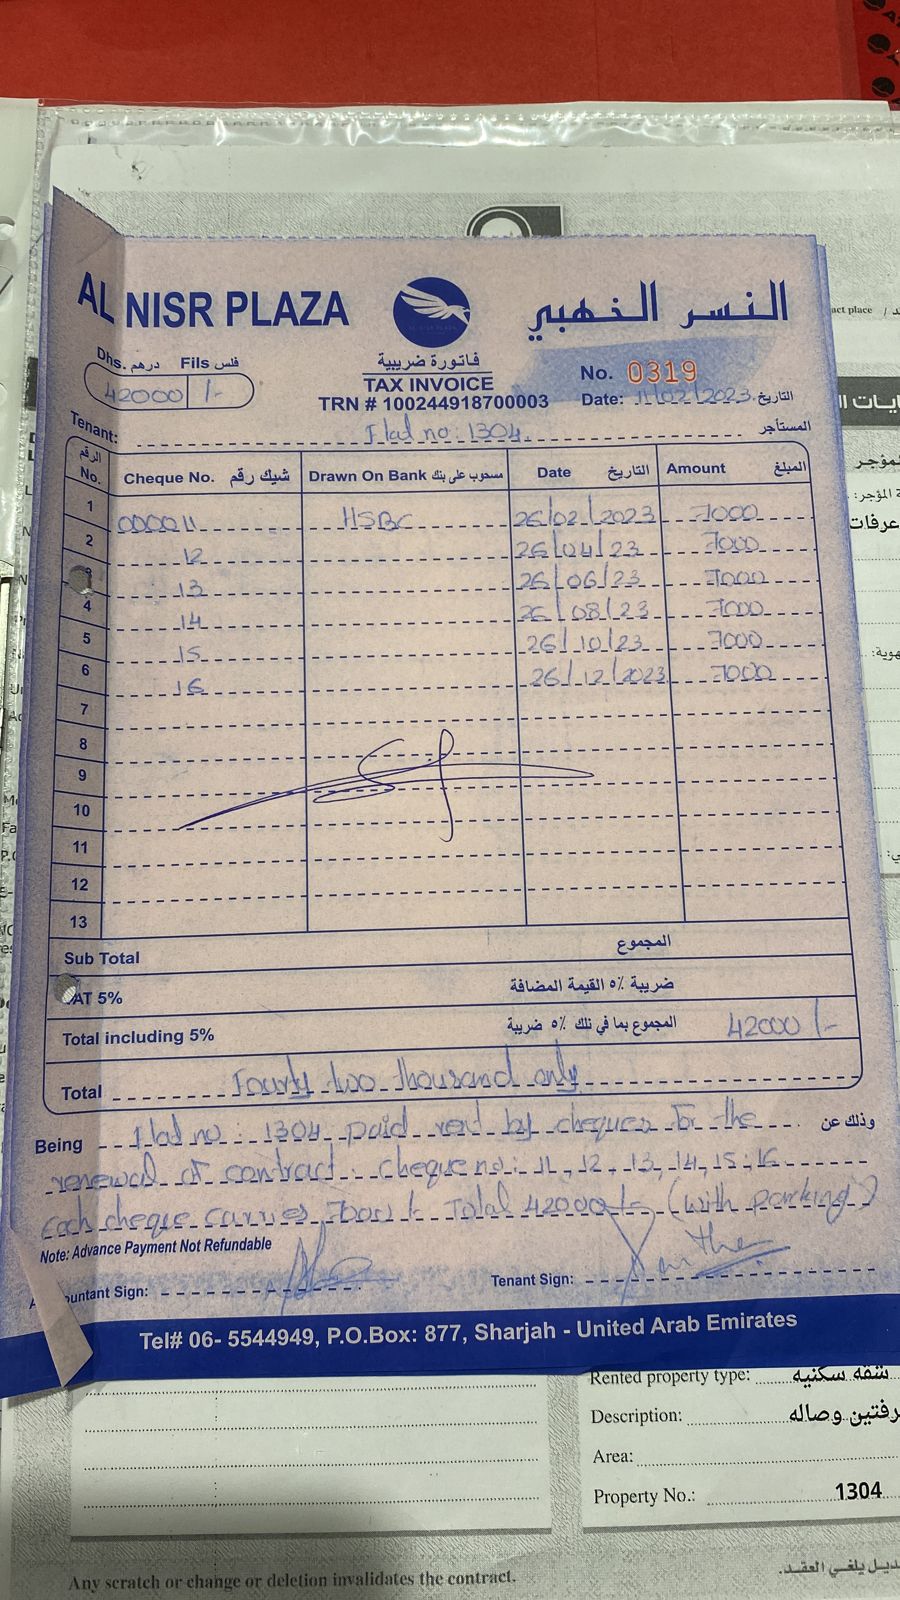 AL NISR PLAZA
النسر الخهبي
Dhs. درهم Fils فلس
42000 /-
فاتورة ضريبية
TAX INVOICE
TRN # 100244918700003
No. 0319
Date: 11/02/2023 التاريخ
Tenant: Flat no: 1304 المستأجر
الرقم No. Cheque No. شيك رقم Drawn On Bank مسحوب على بنك Date التاريخ Amount المبلغ
1 000011 HSBC 26/02/2023 7000
2 12 26/04/23 7000
3 13 26/06/23 7000
4 14 26/08/23 7000
5 15 26/10/23 7000
6 16 26/12/2023 7000
7
8
9
10
11
12
13
Sub Total المجموع
AT 5% ضريبة ٥٪ القيمة المضافة
Total including 5% المجموع بما في تلك ٥٪ ضريبة 42000/-
Total Fourty two thousand only
Being Flat no: 1304 paid rent by cheques for the وذلك عن
renewal of contract. cheque no: 11, 12, 13, 14, 15, 16
Each cheque carries 7000/- Total 42000/- (with parking)
Note: Advance Payment Not Refundable
untant Sign: Tenant Sign:
Tel# 06- 5544949, P.O.Box: 877, Sharjah - United Arab Emirates
Rented property type: شقه سكنيه
Description: رفتين وصاله
Area:
Property No.: 1304
Any scratch or change or deletion invalidates the contract.
ديل يلغي العقد.